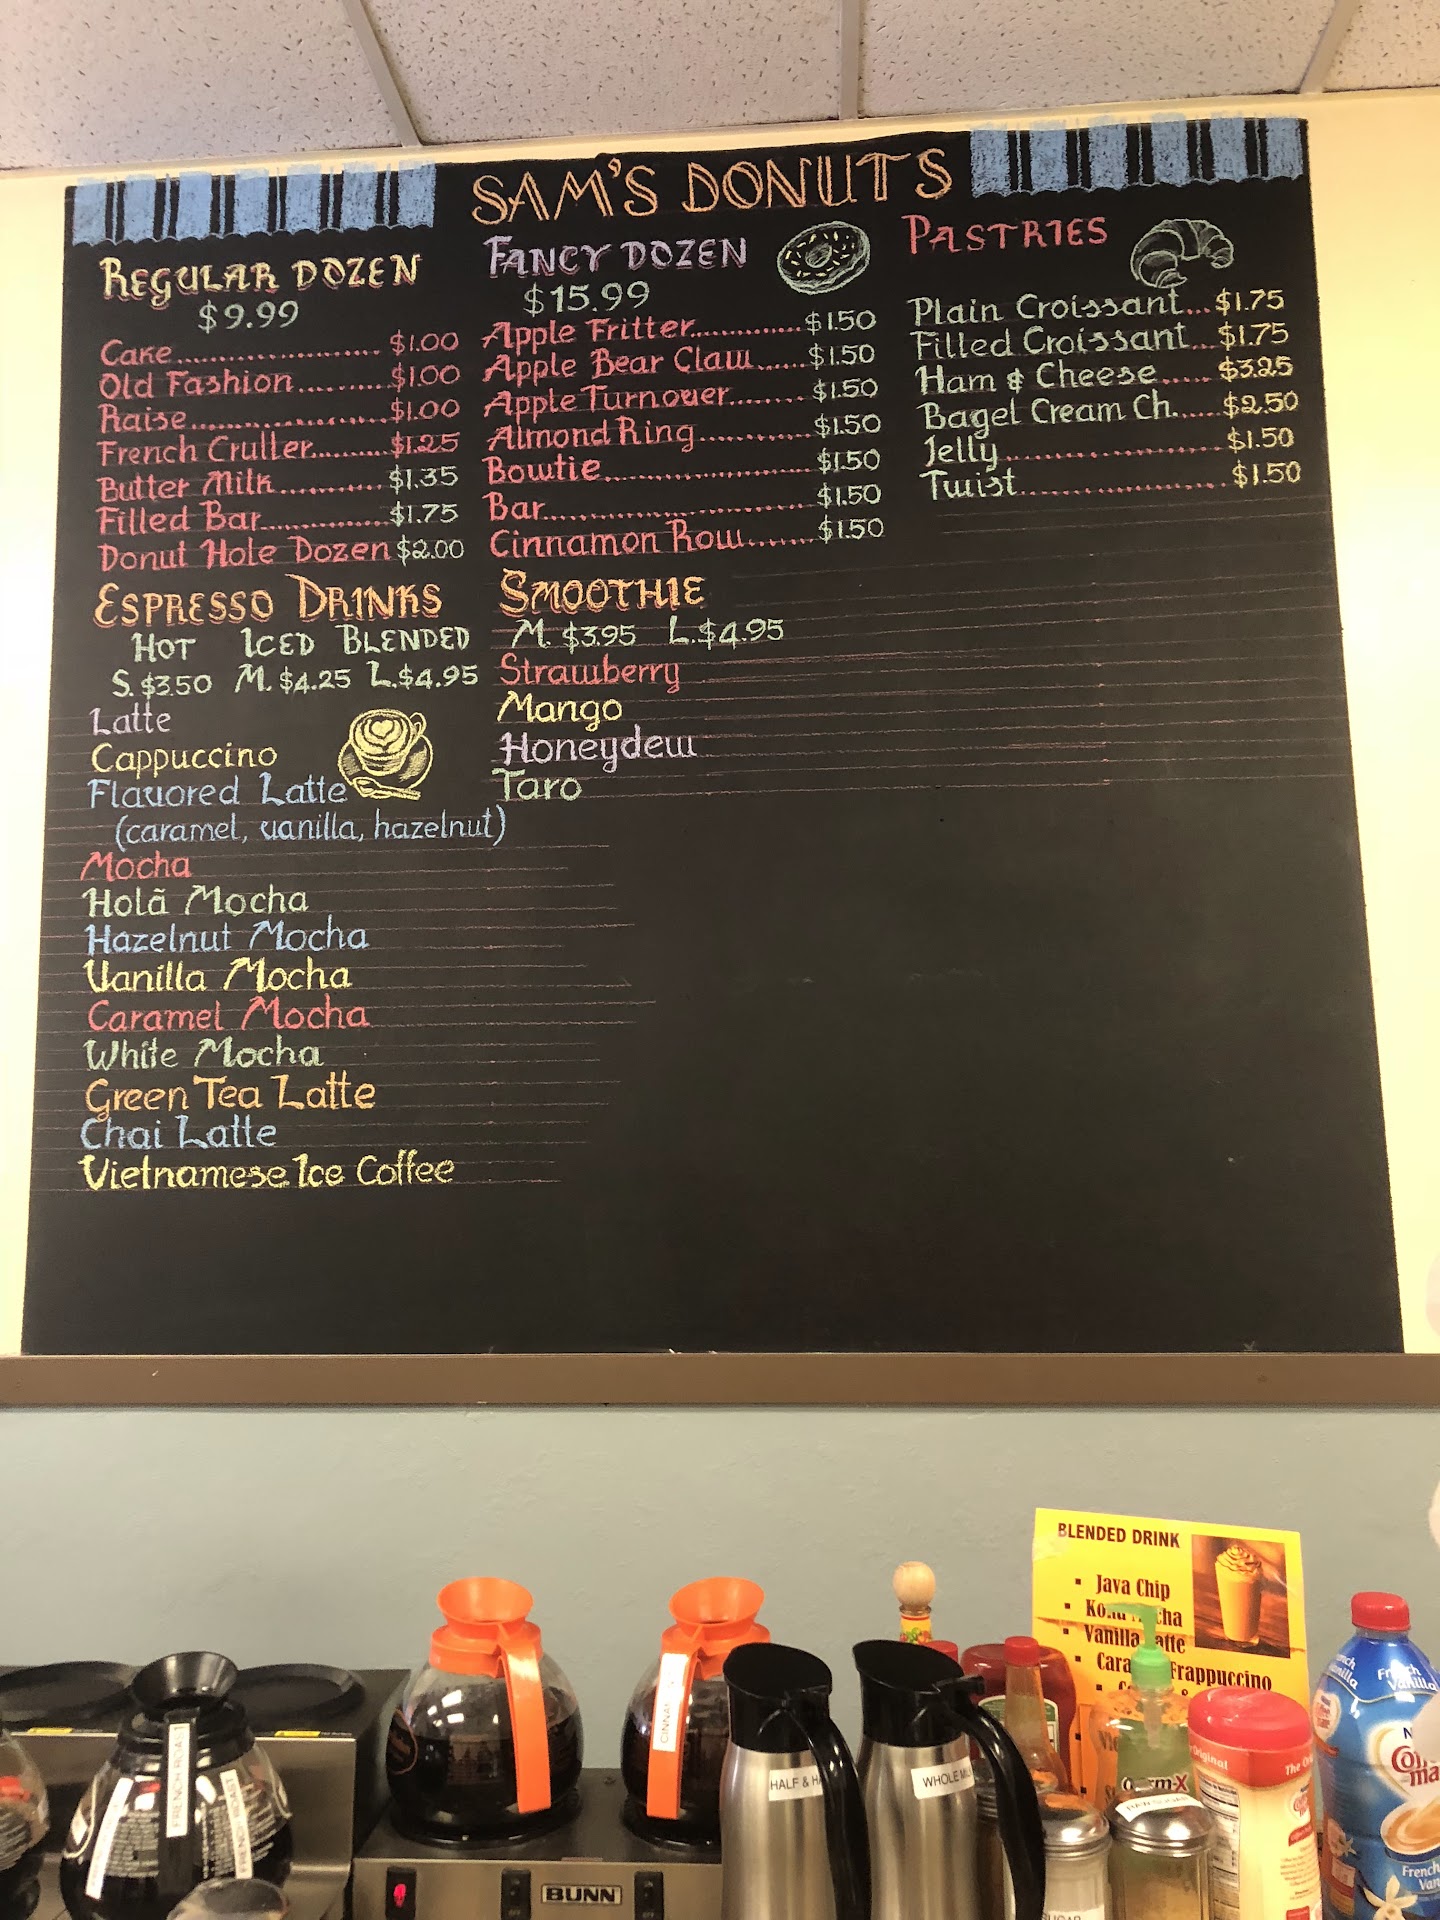 SAM'S DONUTS
REGULAR DOZEN
$9.99
Cake..................... $1.00
Old Fashion.......... $1.00
Raise..................... $1.00
French Cruller......... $1.25
Butter Milk............ $1.35
Filled Bar.............. $1.75
Donut Hole Dozen $2.00
ESPRESSO DRINKS
HOT ICED BLENDED
S. $3.50 M. $4.25 L. $4.95
Latte
Cappuccino
Flavored Latte
(caramel, vanilla, hazelnut)
Mocha
Holã Mocha
Hazelnut Mocha
Vanilla Mocha
Caramel Mocha
White Mocha
Green Tea Latte
Chai Latte
Vietnamese Ice Coffee
FANCY DOZEN
$15.99
Apple Fritter.............. $1.50
Apple Bear Claw...... $1.50
Apple Turnover........ $1.50
Almond Ring............ $1.50
Bowtie...................... $1.50
Bar............................ $1.50
Cinnamon Row....... $1.50
SMOOTHIE
M. $3.95 L. $4.95
Strawberry
Mango
Honeydew
Taro
PASTRIES
Plain Croissant... $1.75
Filled Croissant... $1.75
Ham & Cheese..... $3.25
Bagel Cream Ch..... $2.50
Jelly....................... $1.50
Twist..................... $1.50
BLENDED DRINK
Java Chip
Vanilla
Frappuccino
FRENCH ROAST
HALF &
WHOLE
BUNN
SUGAR
Original
French
Vanilla
French